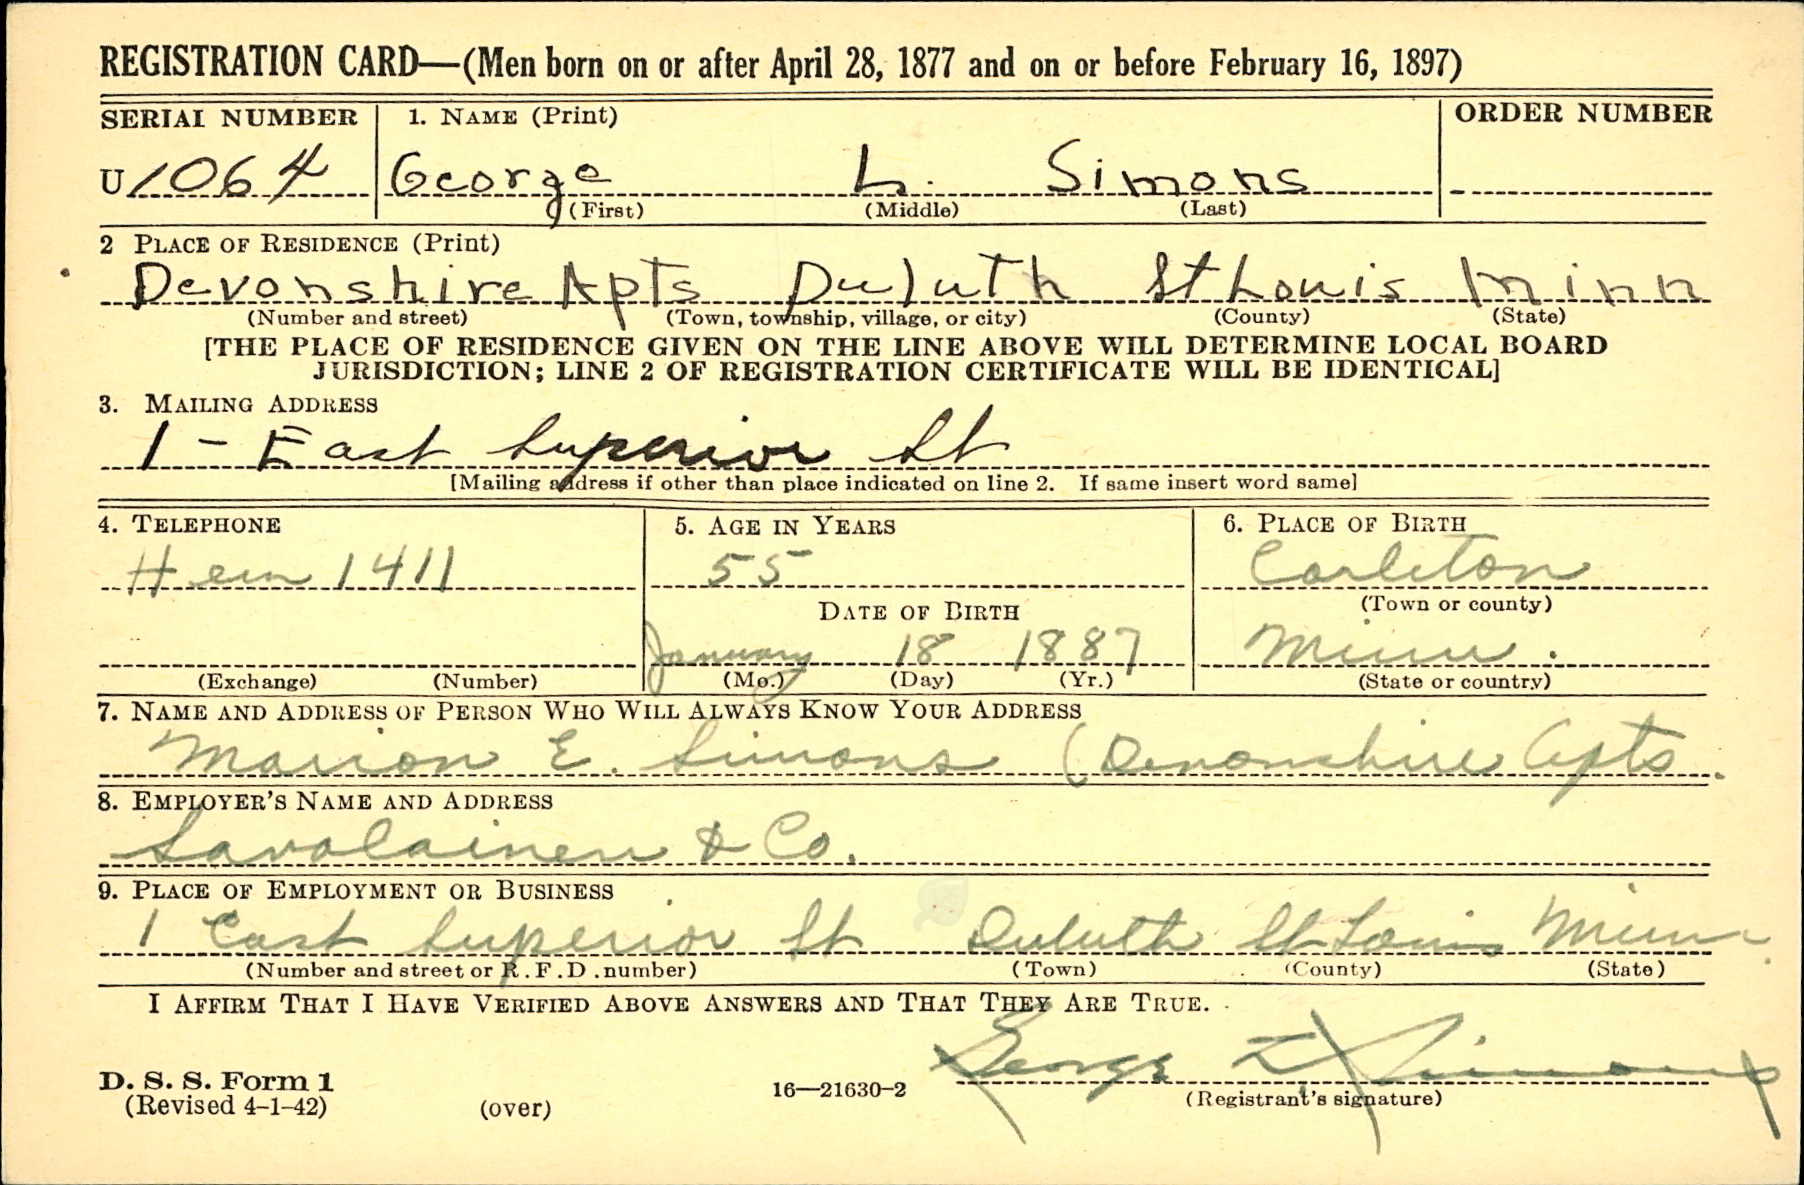 REGISTRATION CARD—(Men born on or after April 28, 1877 and on or before February 16, 1897)
SERIAL NUMBER 1. NAME (Print) ORDER NUMBER
U 1064 George L. Simons
(First) (Middle) (Last)
2 PLACE OF RESIDENCE (Print)
Devonshire Apts Duluth St Louis Minn
(Number and street) (Town, township, village, or city) (County) (State)
[THE PLACE OF RESIDENCE GIVEN ON THE LINE ABOVE WILL DETERMINE LOCAL BOARD
JURISDICTION; LINE 2 OF REGISTRATION CERTIFICATE WILL BE IDENTICAL]
3. MAILING ADDRESS
1 - East Superior St
[Mailing address if other than place indicated on line 2. If same insert word same]
4. TELEPHONE 5. AGE IN YEARS 6. PLACE OF BIRTH
Hem 1411 55 Carleton
(Town or county)
DATE OF BIRTH
January 18 1887 Minn.
(Exchange) (Number) (Mo.) (Day) (Yr.) (State or country)
7. NAME AND ADDRESS OF PERSON WHO WILL ALWAYS KNOW YOUR ADDRESS
Marion E. Simons (Devonshire Apts.
8. EMPLOYER'S NAME AND ADDRESS
Savolainen & Co.
9. PLACE OF EMPLOYMENT OR BUSINESS
1 East Superior St Duluth St Louis Minn.
(Number and street or R.F.D. number) (Town) (County) (State)
I AFFIRM THAT I HAVE VERIFIED ABOVE ANSWERS AND THAT THEY ARE TRUE.
George L. Simons
D. S. S. Form 1
(Revised 4-1-42) (over) 16—21630-2 (Registrant's signature)